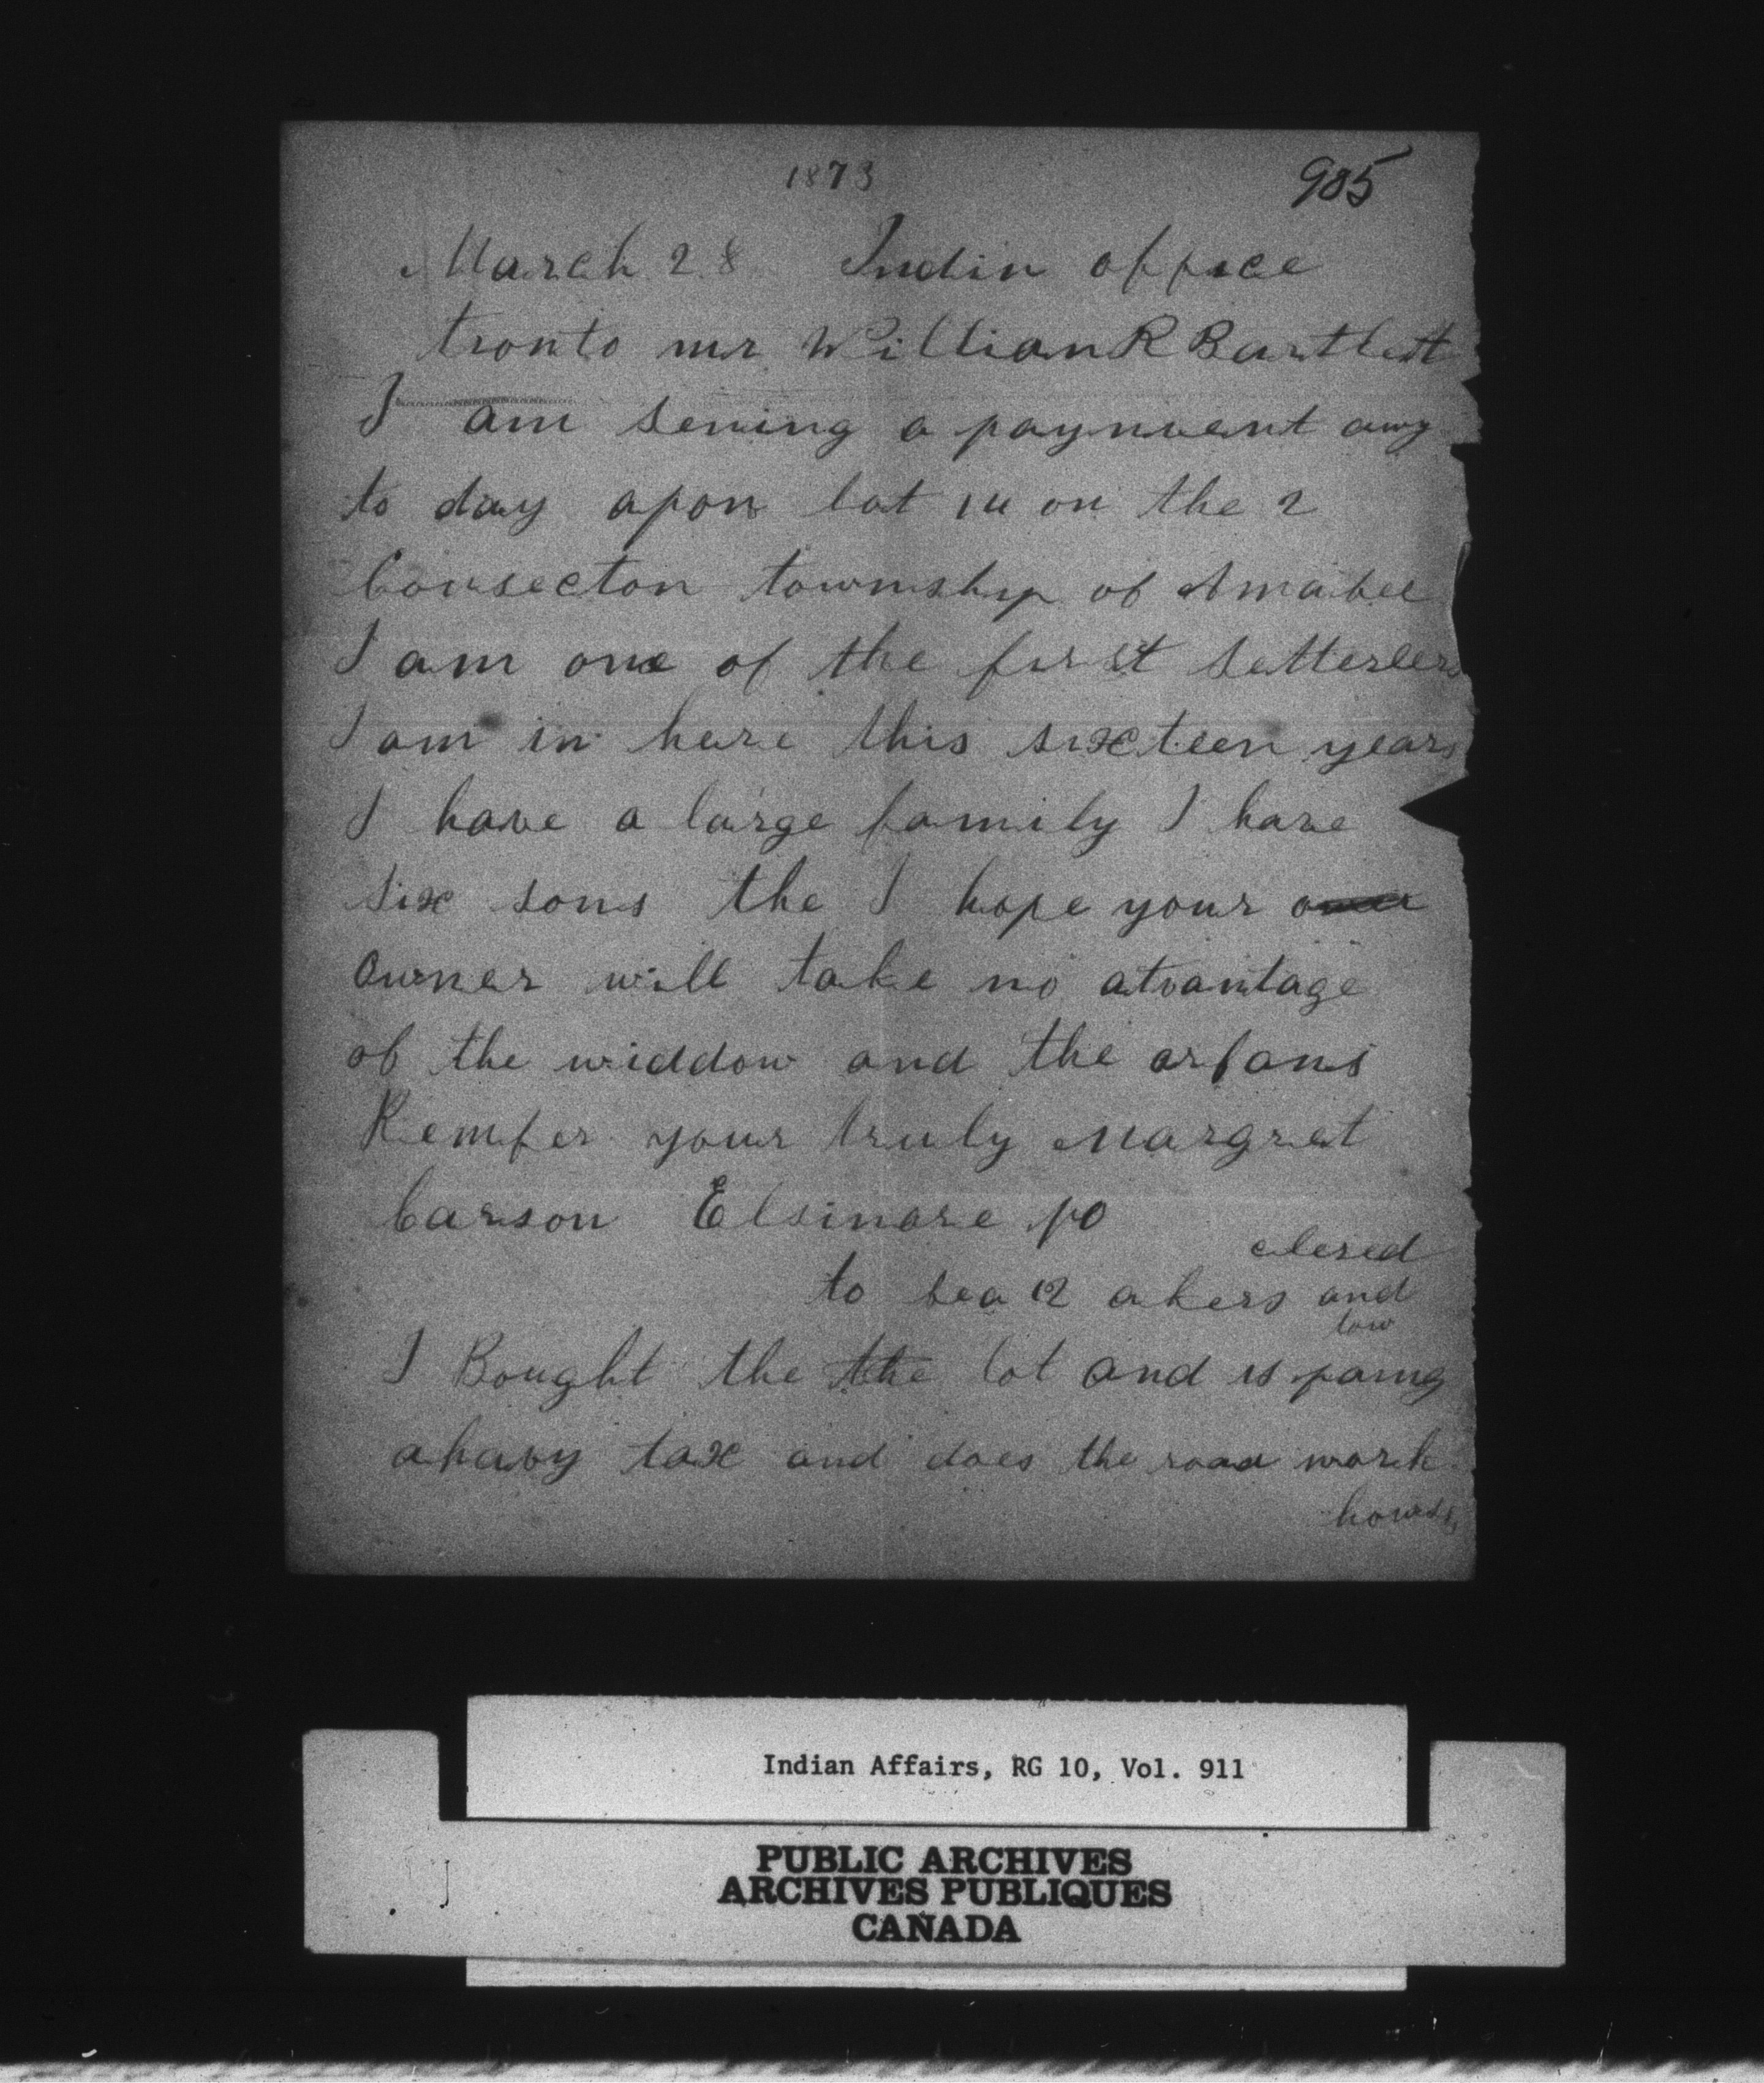 1873
985
March 28 Indin office
tronto mr William R Bartlett
I am sening a paynment awy
to day apon lot 14 on the 2
Consecton township of Amabel
I am one of the first setterlers
I am in here this sixteen years
I have a large family I have
six sons the I hope your
owner will take no atvantage
of the widdow and the orfans
Remfer your truly Margret
Carson Elsinore po
clered
to bea 12 akers and
tow
I Bought the the lot and is paing
a havy tax and does the road work
howses
Indian Affairs, RG 10, Vol. 911
PUBLIC ARCHIVES
ARCHIVES PUBLIQUES
CANADA